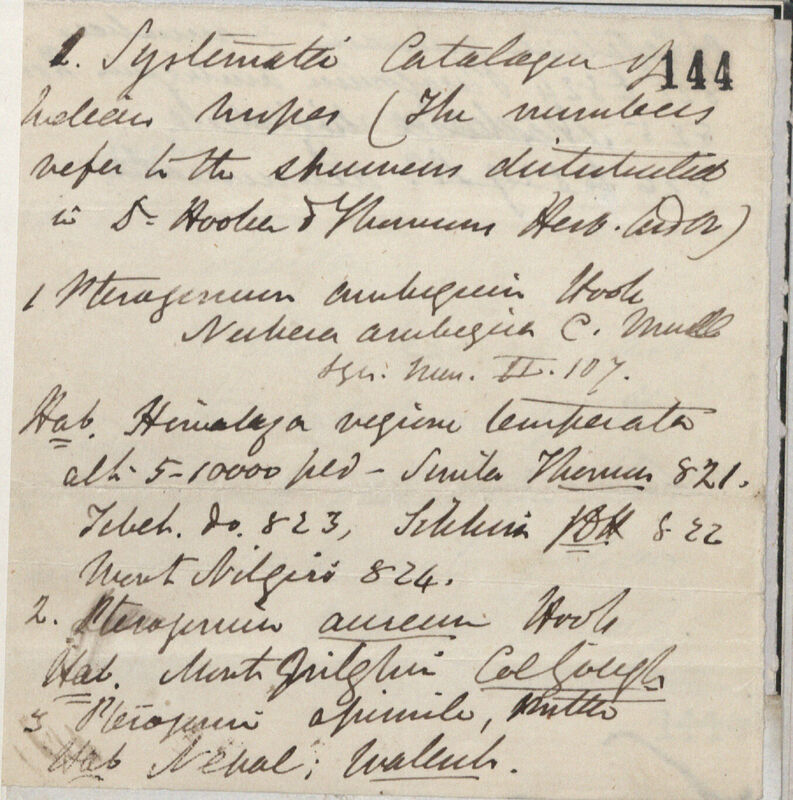 1. Systematic Catalogue of 144
Indian Mosses (The numbers
refer to the specimens distributed
in Dr Hooker & Thomsons Herb. Ind Or)
1 Pterogonium ambiguum Hook
Neckera ambigua C. Mull
Syn. Mus. II. 107.
Hab. Himalaya regione temperata
alt 5-10000 ped - Simla Thomson 821.
Tibet. do. 823, Sikkim JDH 822
Mont Nilgiri 824.
2. Pterogonium aureum Hook
Hab. Mont Nilghiri Col Gough
3 Pterogoni Mitten
Hab Nepal; Wallich.